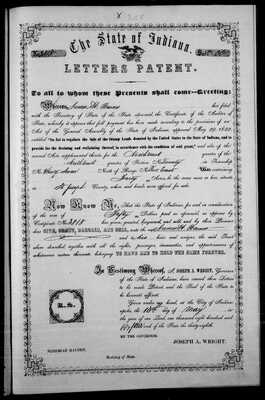 The State of Indiana.
LETTERS PATENT.
To all to whom these Presents shall come—Greeting:
Whereas, has filed
with the Secretary of State of the State aforesaid, the Certificate of the Auditor of
State, whereby it appears that full payment has been made according to the provisions of an
Act of the General Assembly of the State of Indiana, approved May 29, 1852,
entitled "An Act to regulate the sale of the Swamp Lands donated by the United States to the State of Indiana, and to
provide for the draining and reclaiming thereof, in accordance with the condition of said grant," and acts of the
several Acts supplemental thereto for the quarter of the
quarter of Section in Township
No. North of Range
Acres, be the same more or less, situate
in St Joseph County, where said lands were offered for sale.
Now Know Ye, That the State of Indiana, for and in consideration
of the sum of Fifty Dollars paid as aforesaid, as appears by
Certificate No. has granted, bargained and sold, and by these Presents
does GIVE, GRANT, BARGAIN, AND SELL, unto the said
and to heirs and assigns, the said Tract
above described, together with all the rights, privileges, immunities, and appurtenances of
whatsoever nature thereunto belonging, TO HAVE AND TO HOLD THE SAME FOREVER.
In Testimony Whereof, I, JOSEPH A. WRIGHT, Governor
of the State of Indiana, have caused these Letters
to be made Patent, and the Seal of the State to
be hereunto affixed.
Given under my hand, at the City of Indian-
apolis, the day of May in
the year of our Lord, one thousand eight hundred and
and of the State the thirty-eighth.
BY THE GOVERNOR.
JOSEPH A. WRIGHT.
NEHEMIAH HAYDEN,
Secretary of State.